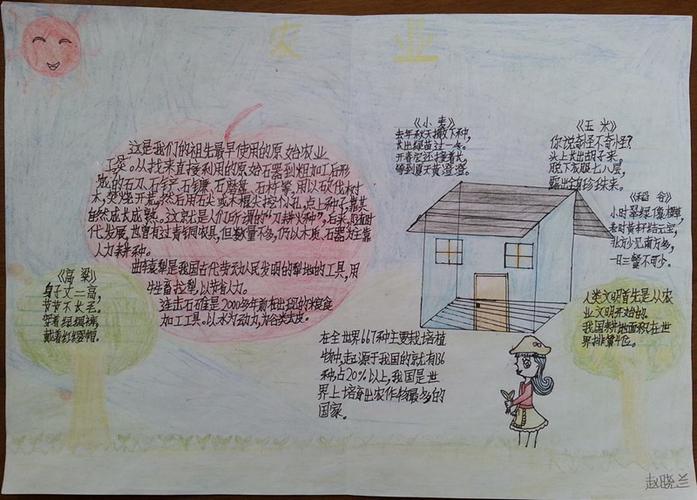 农 业
这是我们的祖先最早使用的原始农业
工具。从找来直接利用的原始石器到粗加工后形
成的石刀、石铲、石镰、石磨盘、石杵等,用以砍伐树
木,焚烧开荒,然后用石尖或木棍尖挖个小孔,点上种子,靠其
自然成长成熟。这就是人们所谓的“刀耕火种”,后来,随着时
代发展,也曾有过青铜农具,但数量不多,仍以木质、石器为主靠
人力来耕种。
曲辕犁是我国古代劳动人民发明的犁地的工具,用
牛牲畜拉犁,以节省人力。
连击石碓是2000多年前在出现的粮食
加工工具。以水为动力,为谷类去皮。
《高粱》
身子丈二高,
节节不长毛。
穿着绿绸裤,
戴着珍珠帽。
《小麦》
去年秋天撒下种,
长出绿苗过一冬。
开春它还接着长,
等到夏天黄澄澄。
《玉米》
你说奇怪不奇怪?
头上长出胡子来,
脱下衣服七八层,
露出珍珠来。
《稻谷》
小时翠绿
老时黄
北方少见南方多,
一日三餐不可少。
在全世界667种主要栽培植
物中,起源于我国的就有136
种,占20%以上,我国是世
界上培育出农作物最多的
国家。
人类文明首先是从农
业文明开始的。
我国耕地面积在世
界排第4位。
赵晓兰